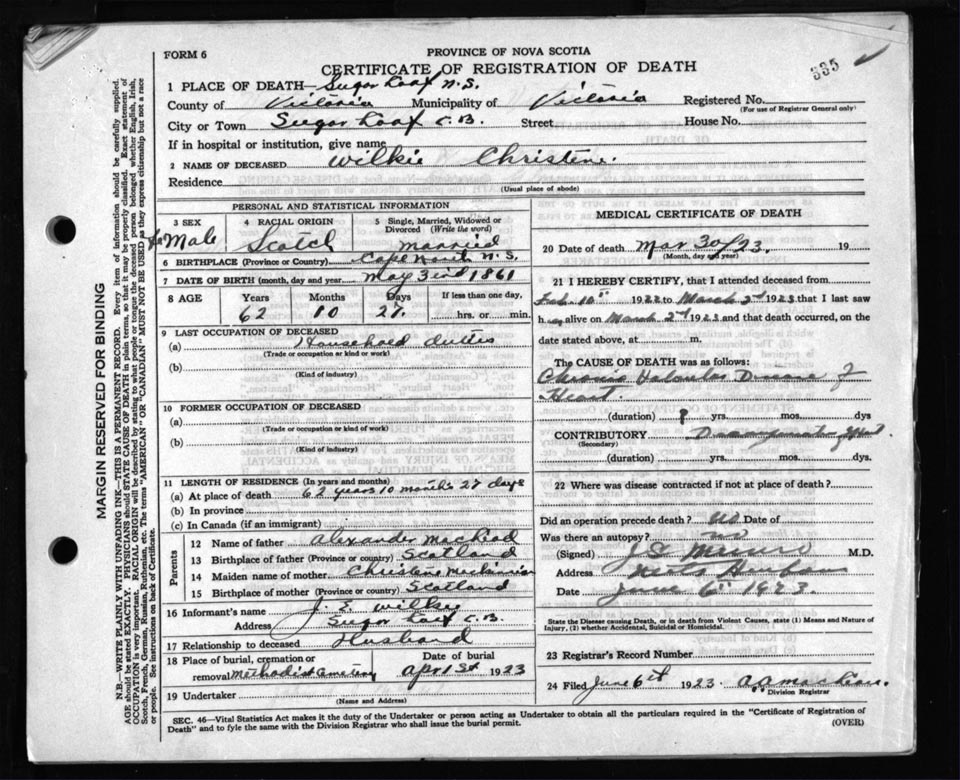 FORM 6
PROVINCE OF NOVA SCOTIA
CERTIFICATE OF REGISTRATION OF DEATH
335
1 PLACE OF DEATH Sugar Loaf N.S.
County of Victoria Municipality of Victoria Registered No.
(For use of Registrar General only)
City or Town Sugar Loaf C.B. Street House No.
If in hospital or institution, give name
2 NAME OF DECEASED Wilkie Christene.
Residence
(Usual place of abode)
PERSONAL AND STATISTICAL INFORMATION
3 SEX
feMale
4 RACIAL ORIGIN
Scotch
5 Single, Married, Widowed or Divorced (Write the word)
married
6 BIRTHPLACE (Province or Country) Cape North N.S.
7 DATE OF BIRTH (month, day and year) May 3 1861
8 AGE Years Months Days If less than one day,
62 10 27 hrs. or min.
9 LAST OCCUPATION OF DECEASED
(a) Household duties
(Trade or occupation or kind of work)
(b)
(Kind of industry)
10 FORMER OCCUPATION OF DECEASED
(a)
(Trade or occupation or kind of work)
(b)
(Kind of industry)
11 LENGTH OF RESIDENCE (In years and months)
(a) At place of death 62 years 10 months 27 days
(b) In province
(c) In Canada (if an immigrant)
Parents
12 Name of father Alexander MacLeod
13 Birthplace of father (Province or country) Scotland
14 Maiden name of mother Christene
15 Birthplace of mother (Province or Country) Scotland
16 Informant's name J. E. Wilkie
Address Sugar Loaf C.B.
17 Relationship to deceased Husband
18 Place of burial, cremation or removal Methodist Cemetery
Date of burial April 1st 1923
19 Undertaker
(Name and Address)
MEDICAL CERTIFICATE OF DEATH
20 Date of death Mar 30/23. 19
(Month, day and year)
21 I HEREBY CERTIFY, that I attended deceased from
Feb 10th 1922 to March 2nd 1923 that I last saw
h alive on March 2nd 1923 and that death occurred, on the
date stated above, at m.
The CAUSE OF DEATH was as follows:
Chronic Valvular Disease of
Heart.
(duration) ? yrs. mos. dys
CONTRIBUTORY
(Secondary)
(duration) yrs. mos. dys.
22 Where was disease contracted if not at place of death?
Did an operation precede death? no Date of
Was there an autopsy? no
(Signed) Munro M.D.
Address Neils Harbour
Date June 6th 1923.
State the Disease causing Death, or in death from Violent Causes, state (1) Means and Nature of Injury, (2) whether Accidental, Suicidal or Homicidal.
23 Registrar's Record Number
24 Filed June 6th 1923 A.A. MacLean.
Division Registrar
SEC. 46—Vital Statistics Act makes it the duty of the Undertaker or person acting as Undertaker to obtain all the particulars required in the "Certificate of Registration of
Death" and to fyle the same with the Division Registrar who shall issue the burial permit. (OVER)
MARGIN RESERVED FOR BINDING
N.B.—WRITE PLAINLY WITH UNFADING INK.—THIS IS A PERMANENT RECORD. Every item of information should be carefully supplied.
AGE should be stated EXACTLY. PHYSICIANS should STATE CAUSE OF DEATH in plain terms, so that it may be properly classified. Exact statement of
OCCUPATION is very important. RACIAL ORIGIN will be described by stating to what people or tongue the deceased person belonged whether English, Irish,
Scotch, French, German, Russian, Ruthenian, etc. The terms "AMERICAN" OR "CANADIAN" MUST NOT BE USED as they express citizenship but not a race
or people. See instructions on back of Certificate.